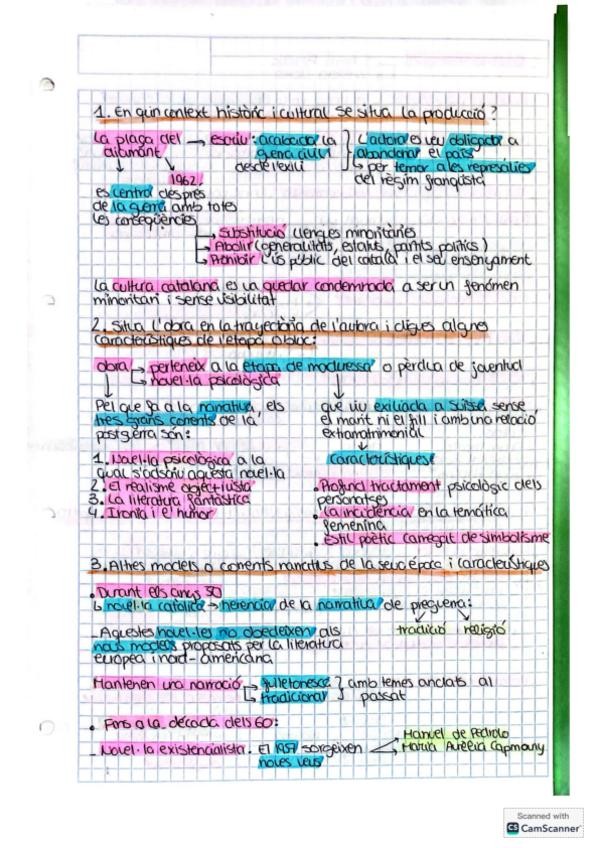 1. En quin context històric i cultural se situa la producció?
La plaça del diamant → escriu: acabada la guerra civil desde l'exili
L'autora es veu obligada a abandonar el país
↳ per temor a les represàlies del règim franquista
1962:
es central després de la guerra amb totes les conseqüències
→ Substitució llengües minoritàries
→ Abolir (generalitats, estatus, partits polítics)
→ Prohibir l'ús públic del català i el seu ensenyament
La cultura catalana es va quedar condemnada a ser un fenómen
minoritari i sense visibilitat
2. Situa l'obra en la trajectòria de l'autora i digues algnes
característiques de l'etapa
obra → perteneix a la etapa de maduressa o pèrdua de joventud
→ novel·la psicològica
Pel que fa a la narrativa, els
tres grans corrents de la
postguerra són:
1. Novel·la psicològica a la
qual s'adscriu aquesta novel·la
2. El realisme objectivista
3. La literatura fantàstica
4. Ironia i el humor
que viu exiliada a Suïssa sense
el marit ni el fill i amb una relació
extramatrimonial
Característiques:
. Profund tractament psicològic dels
personatges
. La incidència en la temàtica
femenina
. Estil poètic carregat de simbolisme
3. Altres models o corrents narratius de la seua època i característiques
. Durant els anys 50
↳ novel·la catòlica → herencia de la narrativa de preguerra:
tradició i religió
_ Aquestes novel·les no obedeixen als
nous models proposats per la literatura
europea i nord-americana
Mantenen una narració → fulletonesca
→ tradicional
amb temes anclats al
passat
. Fins a la década dels 60:
_ Novel·la existencialista. El 1957 sorgeixen
noves veus
Manuel de Pedrolo
Maria Aurèlia Capmany
Scanned with
CS CamScanner